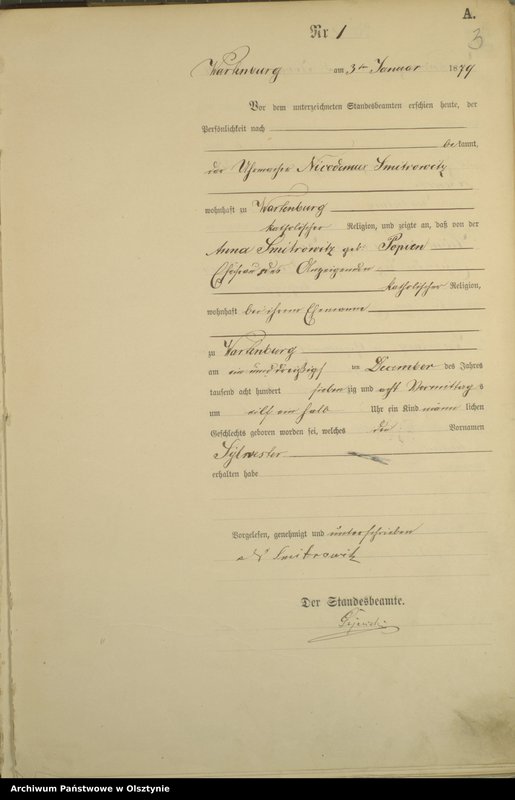 A.
3
Nr 1
Wartenburg am 3ten Januar 1879
Vor dem unterzeichneten Standesbeamten erschien heute, der
Persönlichkeit nach
bekannt,
der Uhrmacher Nicodemus Smitrowitz
wohnhaft zu Wartenburg
katholischer Religion, und zeigte an, daß von der
Anna Smitrowitz geb.
Ehefrau des Anzeigenden
katholischer Religion,
wohnhaft bei ihrem Ehemanne
zu Wartenburg
am ein und dreißigsten December des Jahres
tausend acht hundert siebenzig und acht Vormittags
um eilf ein halb Uhr ein Kind männlichen
Geschlechts geboren worden sei, welches den Vornamen
Sylvester
erhalten habe
Vorgelesen, genehmigt und unterschrieben
N Smitrowitz
Der Standesbeamte.
Archiwum Państwowe w Olsztynie